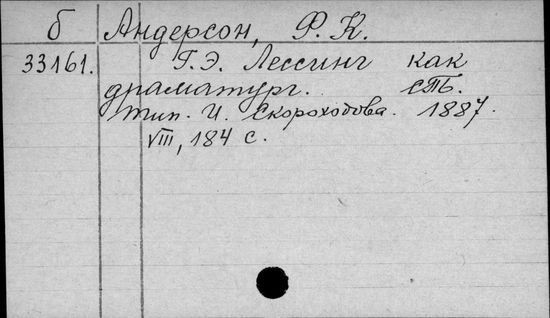 б Андерсон, Ф. К.
33161. Г. Э. Лессинг как
драматург. СПБ.
тип. И. Скороходова. 1887.
VIII, 184 с.